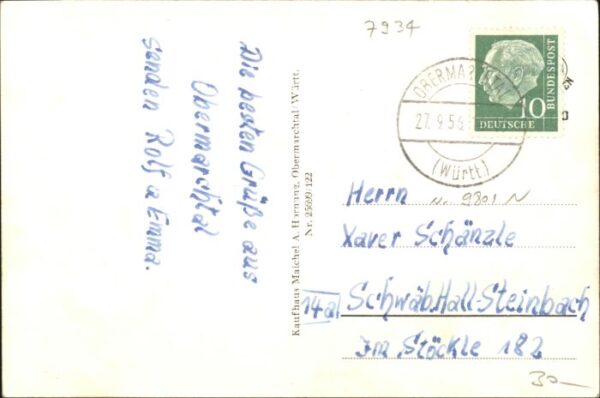 7934
Die besten Grüße aus
Obermarchtal
senden Rolf u Emma.
Kaufhaus Maichel A. Obermarchtal/Württ.
Nr. 25699-122
OBERMARCHTAL
27.9.56
(Württ.)
10
DEUTSCHE
BUNDESPOST
Herrn
No. 9801 N
Xaver Schänzle
14a Schwäb.Hall-Steinbach
Im Stöckle 182
30-